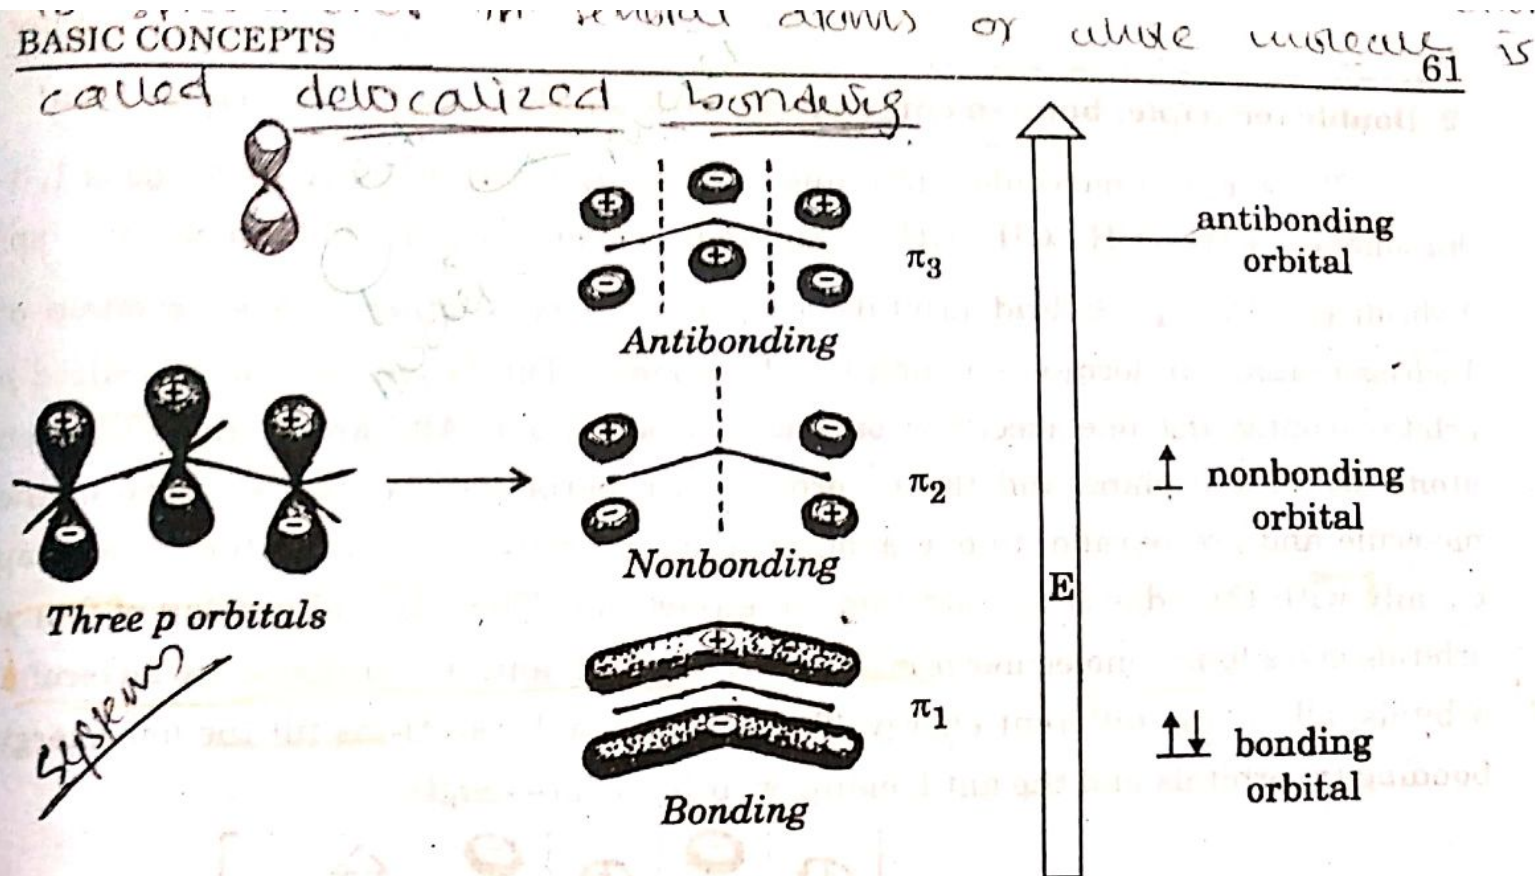 in several atoms or whole molecule is
BASIC CONCEPTS
61
called delocalized bonding
+ - +
- + -
π3
Antibonding
antibonding
orbital
+ + +
- - -
Three p orbitals
system
+ -
- +
π2
Nonbonding
nonbonding
orbital
E
+
-
π1
Bonding
bonding
orbital